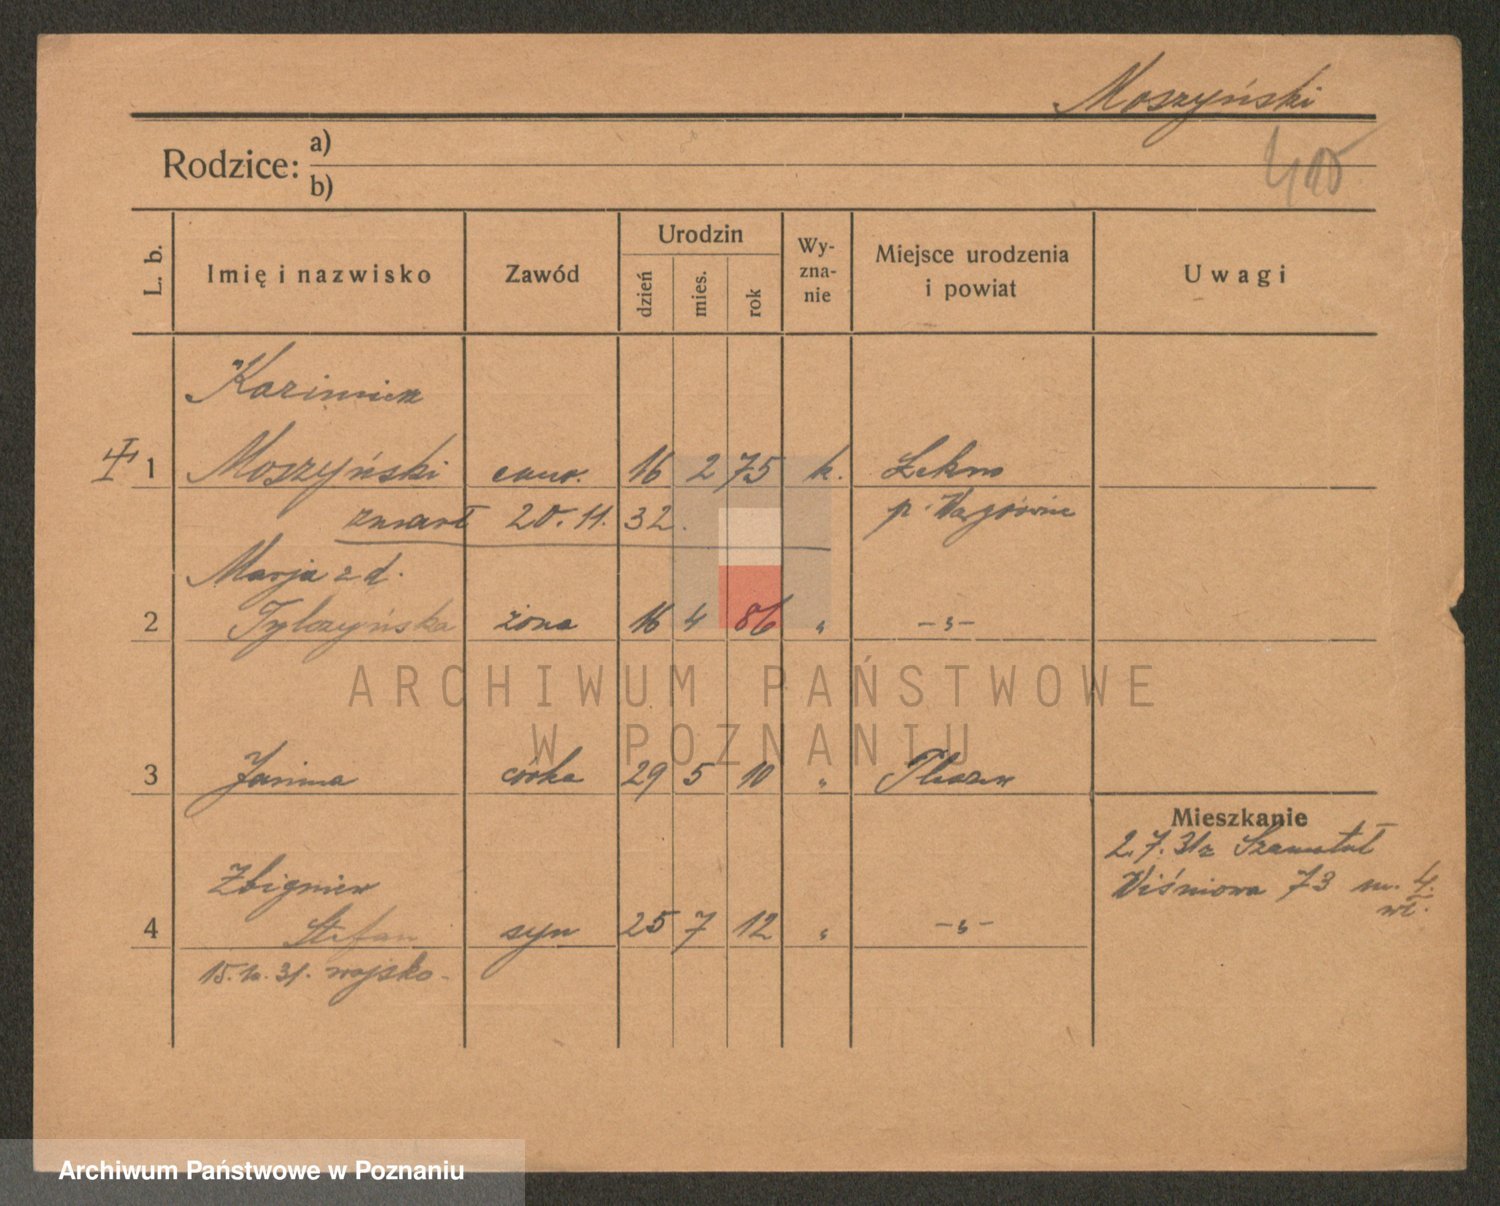 Moszyński
Rodzice: a)
b)
L. b. Imię i nazwisko Zawód Urodzin dzień mies. rok Wy-zna-nie Miejsce urodzenia i powiat Uwagi
Kazimierz
1 Moszyński emer. 16 2 75 k. Łekno
zmarł 20. 11. 32. p. Wągrówiec
Marja z d.
2 Tylczyńska żona 16 4 86 " -"-
ARCHIWUM PAŃSTWOWE
W POZNANIU
3 Janina córka 29 5 10 "
Mieszkanie
2. 7. 31 z Szamotuł
Zbigniew
Wiśniowa 73 m. 4.
4 Stefan syn 25 7 12 " -"-
15. 10. 31. wojsko -
Archiwum Państwowe w Poznaniu